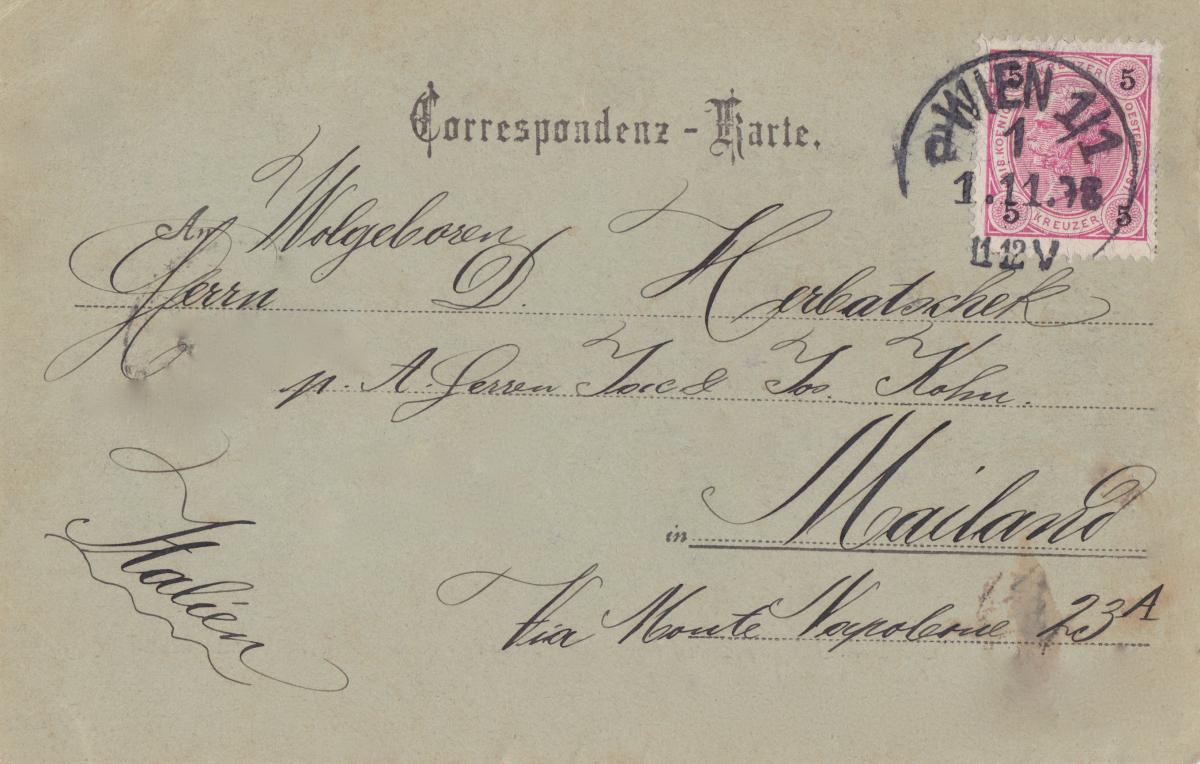 Correspondenz-Karte.
5 KREUZER 5
5 KREUZER 5
P WIEN 1/1
1
1.11.
11-12 V
An Wolgeboren
Herrn D. Herbatschek
p. A. Herren Jac & Jos. Kohn.
in Mailand
Via Monte Napoleone 23A
Italien